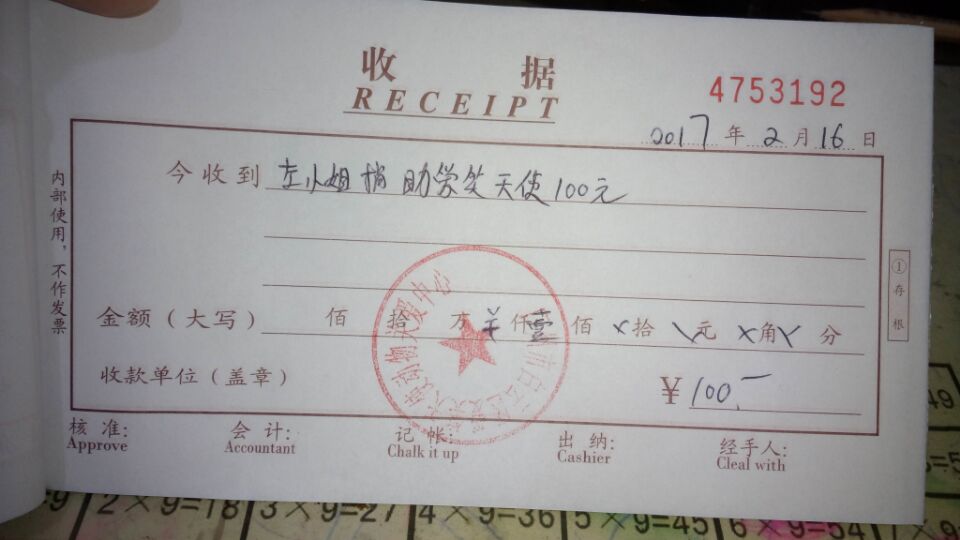 收 据
RECEIPT
4753192
2017年2月16日
今收到 左小姐捎助学笑天使100元
金额（大写） 佰 拾 万 ¥仟壹佰×拾×元×角×分
收款单位（盖章） ¥100.—
核 准: 会 计: 记 帐: 出 纳: 经手人:
Approve Accountant Chalk it up Cashier Cleal with
内部使用，不作发票
①存根
动物关爱中心
2×9=18 3×9=27 4×9=36 5×9=45 6×9=54